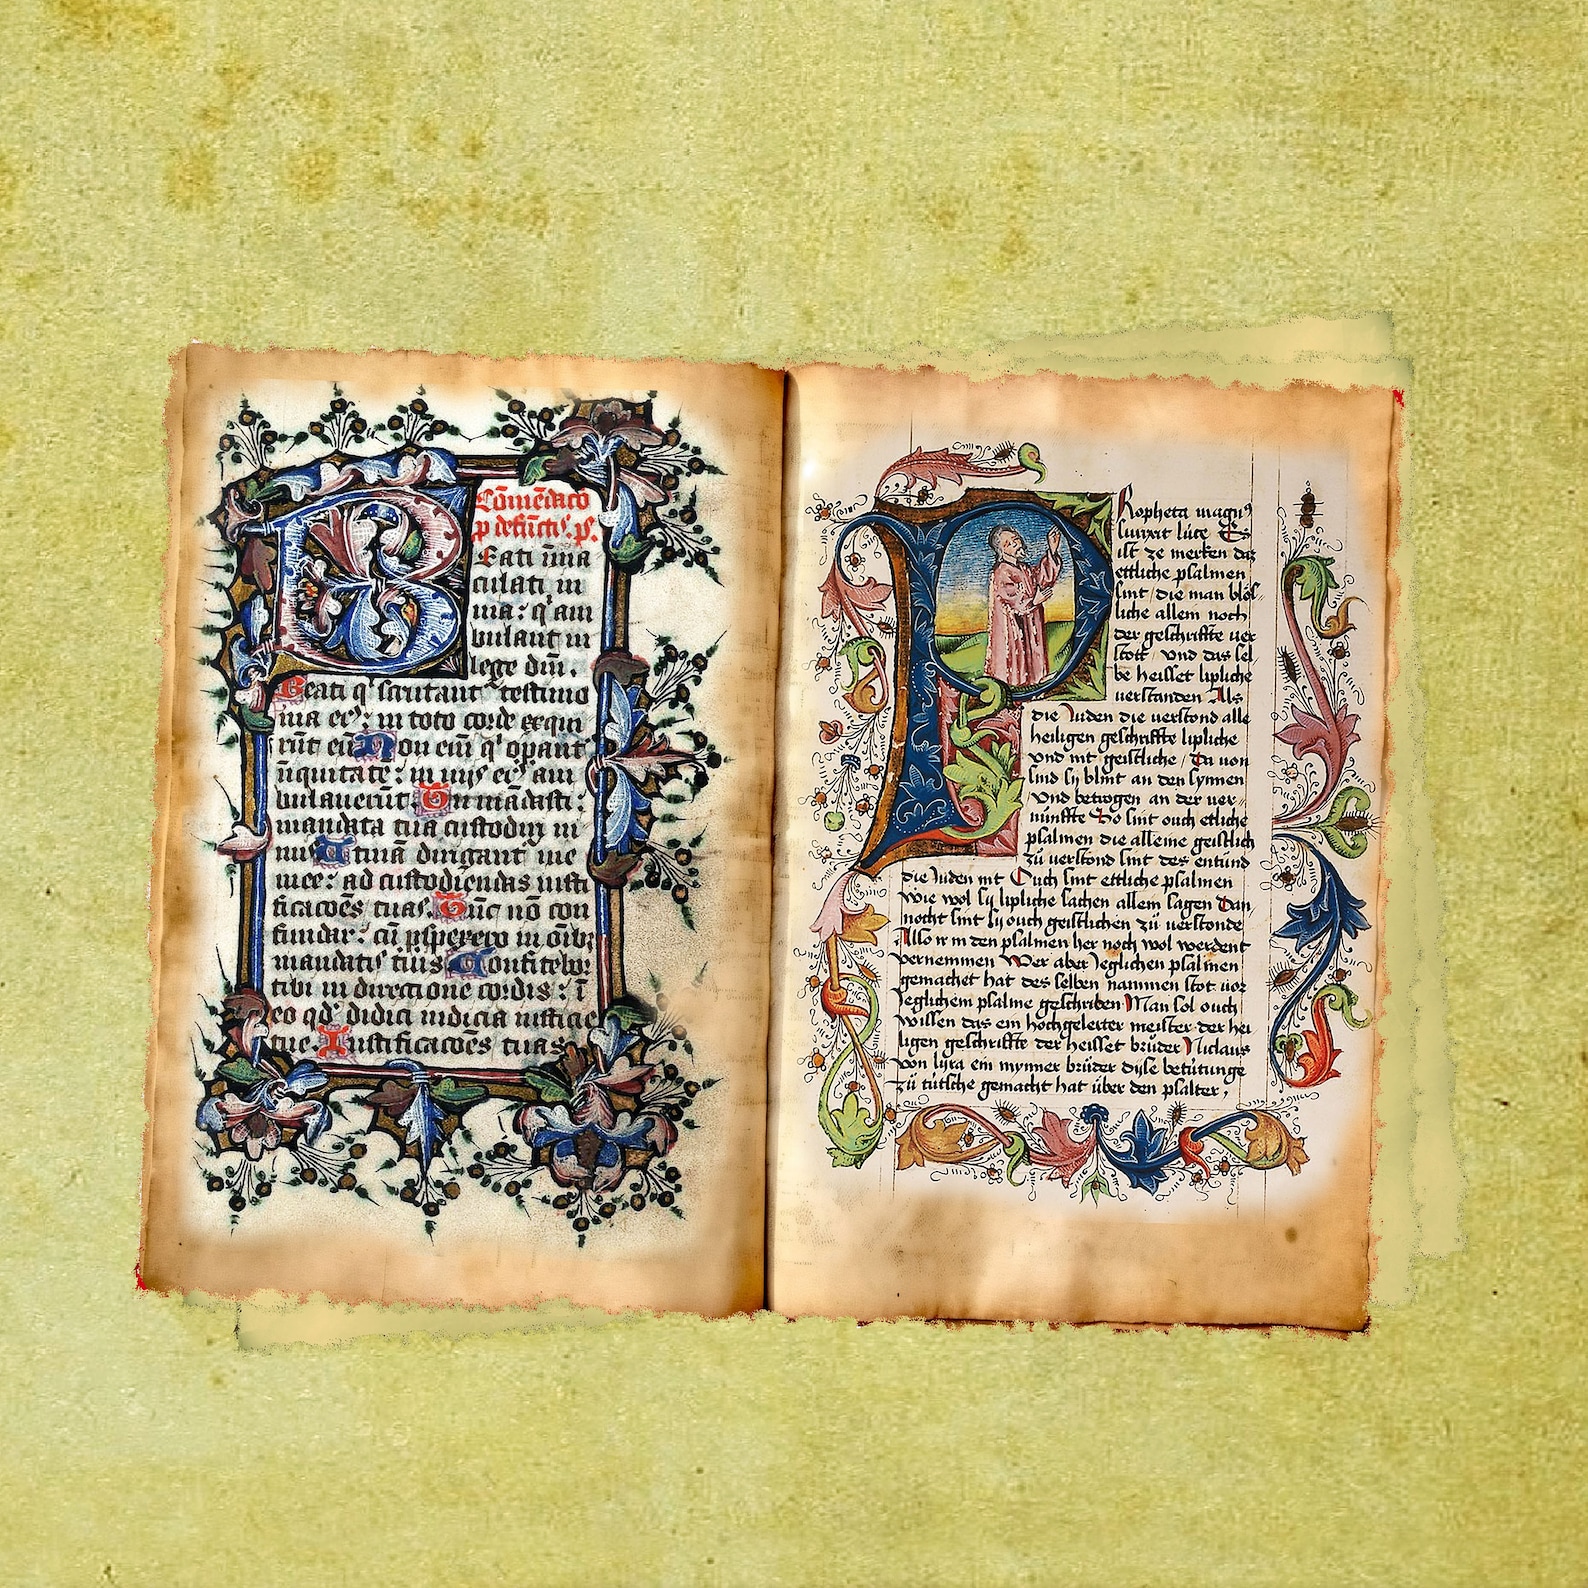 Cōmēdaco
p defūctis. ps.
Eati īma
culati in
via: q' am
bulant in
lege dn̄i.
Beati q' scrutant' testimo
nia ei9: in toto corde exqui
rūt eū Non eni q' opant'
īiquitate: in viis ei9 am
bulauerūt. Tu mādasti:
mandata tua custodiri ni
mis Utinā dirigant' vie
mee: ad custodiendas iusti
ficacōes tuas. Tūc nō con
fundar: cū pspexero in oīb9
mandatis tuis Confitebor
tibi in directione cordis: ī
eo qd' didici iudicia iusticie
tue. Iustificacōes tuas
Ropheta magn9
surrexit luce Es
ist ze merken daz
ettliche psalmen
sint / die man blös
liche allem noch
der geschrifte ver
stott / vnd das sel
be heisset lipliche
verstanden Als
die Juden die verstond alle
heiligen geschrifte lipliche
vnd nit geistliche / Da von
sind sy blint an den synnen
vnd betrogen an der ver-
nunfte So sint ouch etliche
psalmen die alleine geistlich
zů verstond sint des entůnd
die Juden nit Ouch sint ettliche psalmen
wie wol sy lipliche sachen allem sagen Dan-
nocht sint sy ouch geistlichen zů verstonde
Also ir in den psalmen her noch wol werdent
vernemmen Wer aber Jeglichen psalmen
gemachet hat des selben nammen stot vor
Jeglichem psalme geschriben Man sol ouch
wissen das ein hochgeleiter meister der hei
ligen geschrifte der heisset brůder Niclaus
von lyra ein mynner brůder dyse betútunge
zů tútsche gemacht hat über den psalter,